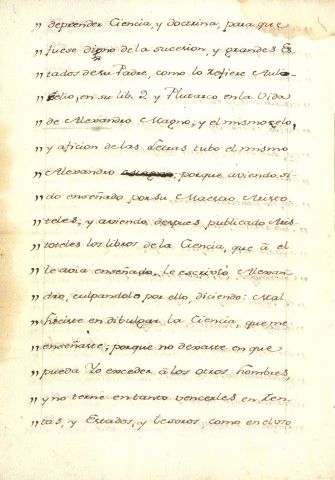 „ deprender Ciencia, y doctrina, para que
„ fuese digno de la sucesion, y grandes Es
„ tados de su Padre, como lo refiere Aulo
„ Gelio, en su lib. 2 y Plutarco en la Vida
„ de Alexandro Magno; y el mismo zelo,
„ y aficion de las Letras tubo el mismo
„ Alexandro porque aviendo si
„ do enseñado por su Maestro Aristo
„ teles; y aviendo despues publicado Aris
„ toteles los libros de la Ciencia, que â el
„ le avia enseñado, le escriviô Alexan
„ dro, culpandole por ello, diciendo: Mal
„ hiciste en dibulgar la Ciencia, que me
„ enseñaste; porque no dexaste en que
„ pueda Yo exceder â los otros hombres,
„ y no terne en tanto vencerles en Ren
„ tas, y Estados, y tesoros, como en el uso